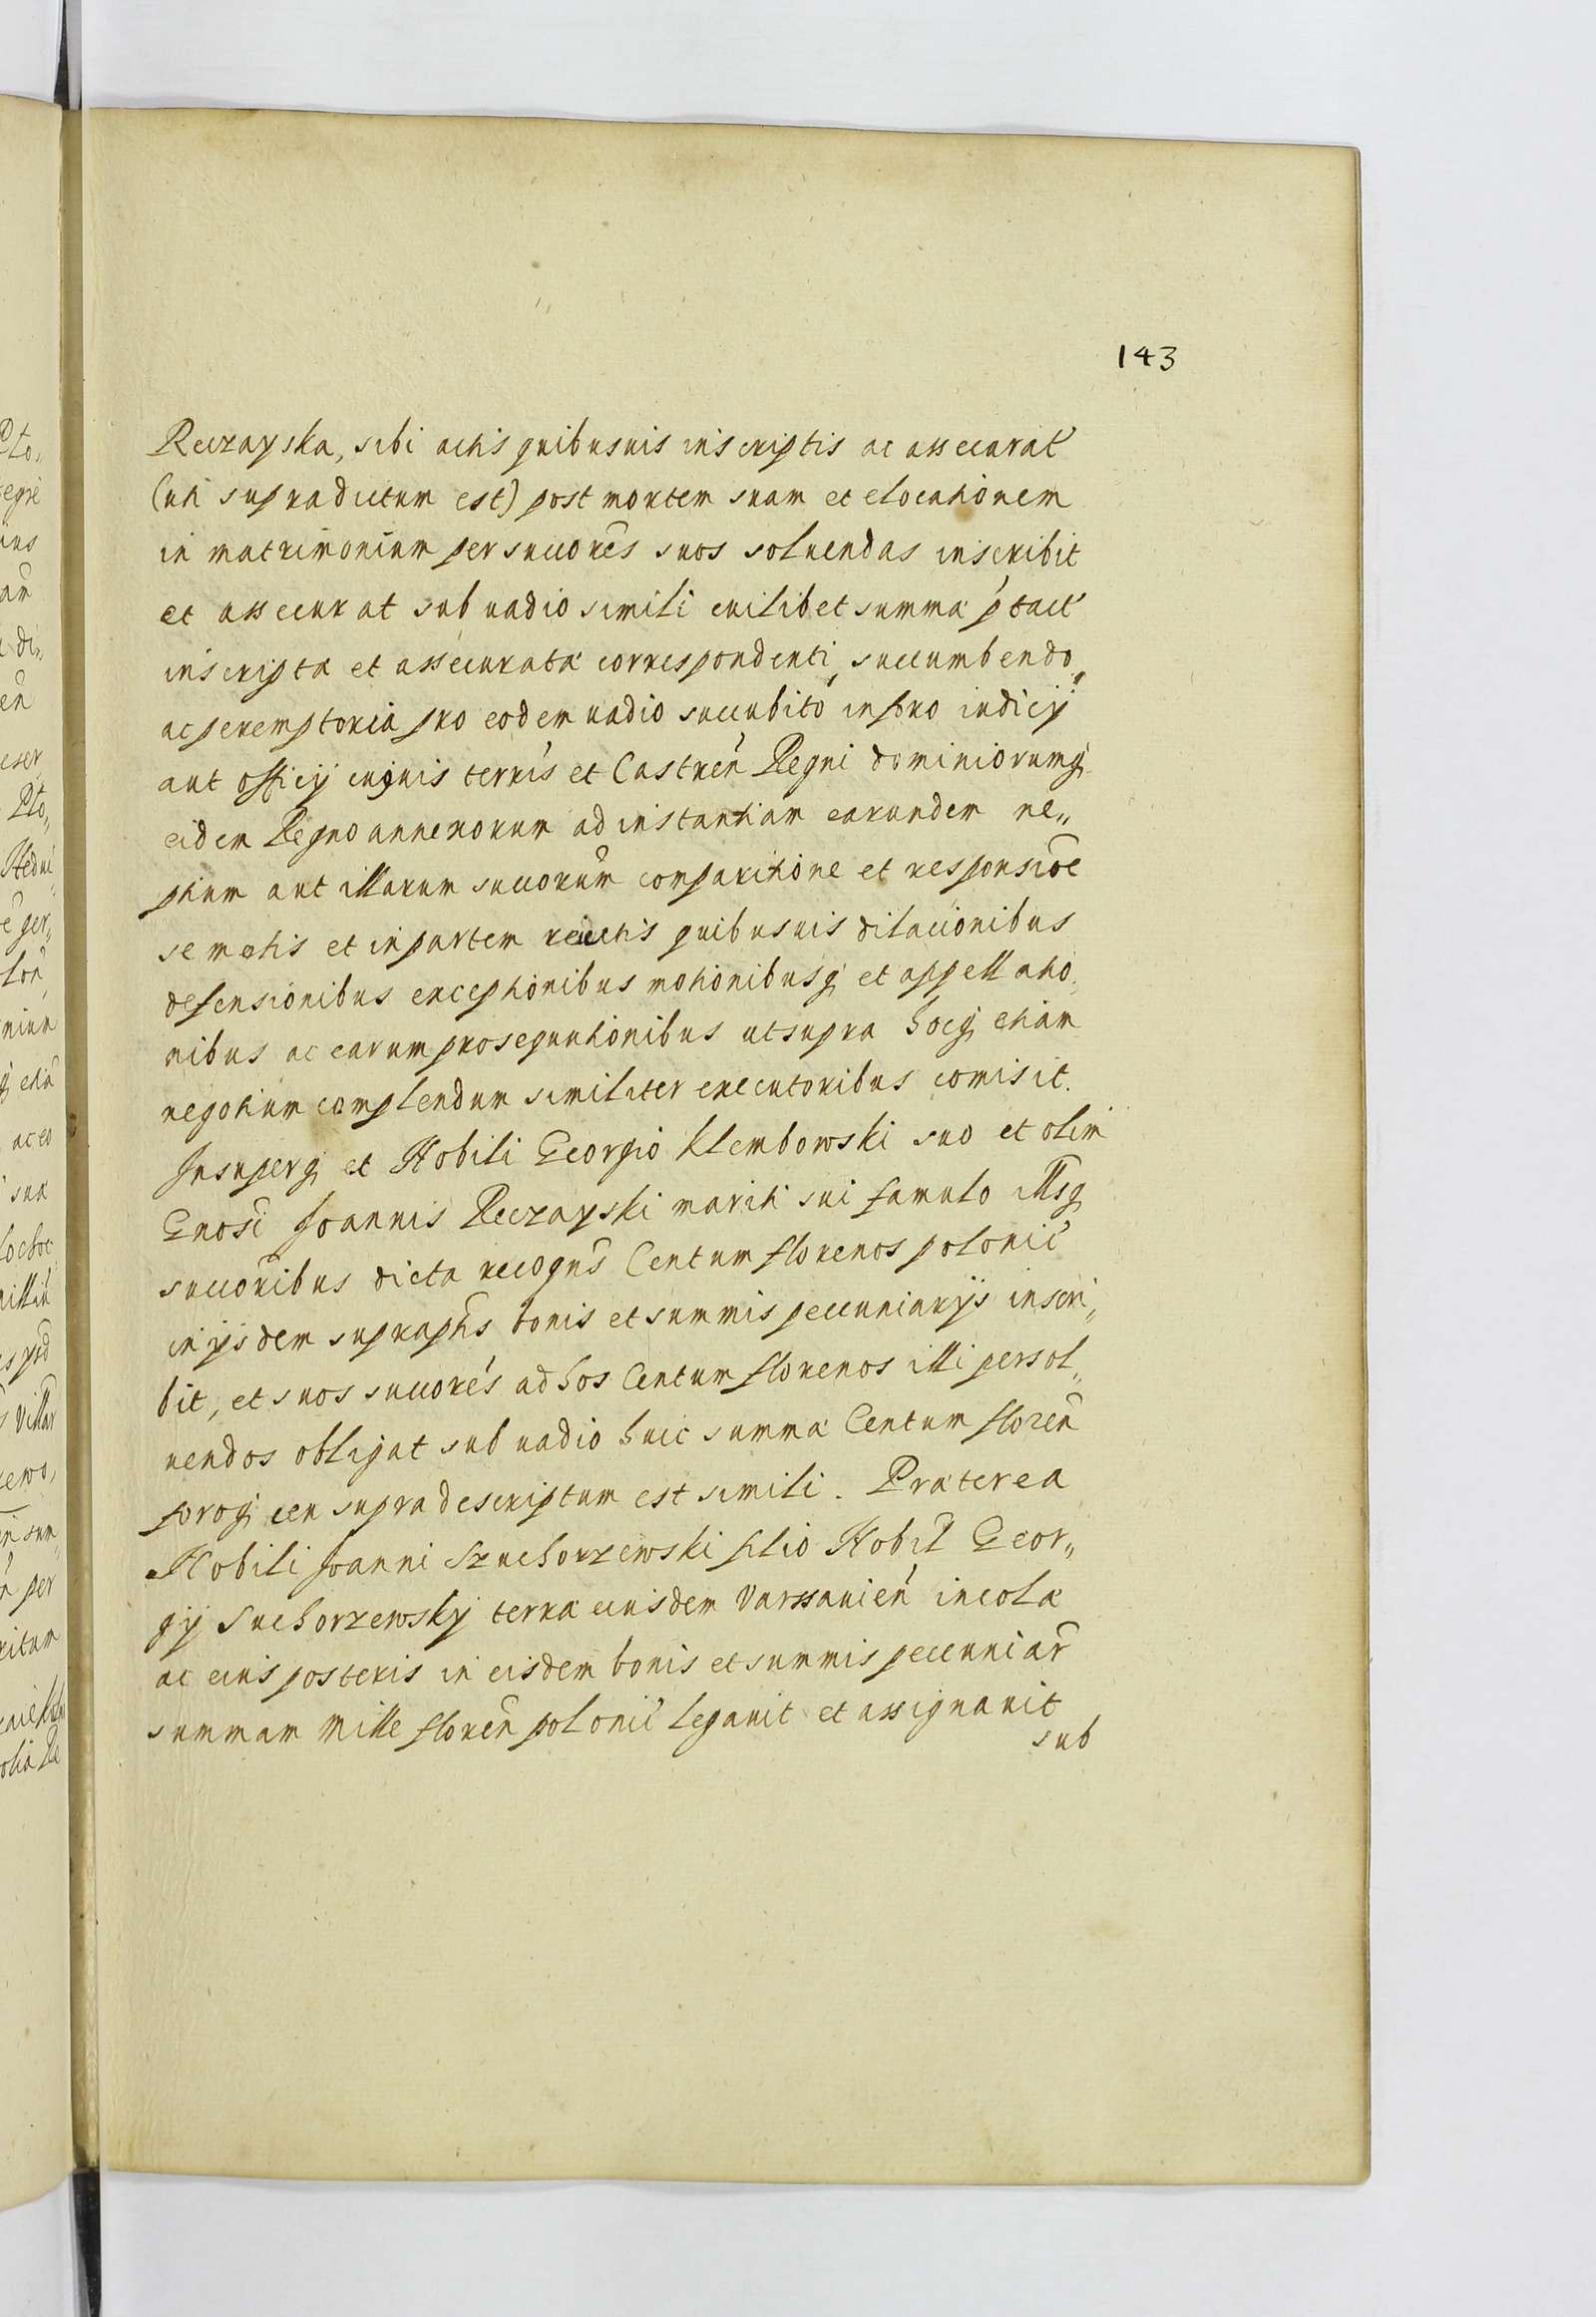 143
Reczayska, sibi actis quibusuis inscriptis ac assecurat̃
(uti supradictum est) post mortem suam et elocationem
in matrimonium per succores̃ suos soluendas inscribit
et assecurat sub uadio simili cuilibet summæ p̃tact̃
inscriptæ et assecuratæ correspondenti, succumbendo,
ac peremptoria pro eodem uadio succubito in foro iudicij
aut officij cuiuis terris̃ et Castren̄ Regni dominiorumq̨
eidem Regno annexorum ad instantiam earundem ne„
ptium aut illarum succorum̃ comparitione et responsioe̅
se motis et in partem reiectis quibusuis dilacionibus
defensionibus exceptionibus motionibusq̨ et appellatio„
nibus ac earum prosequutionibus ut supra hocq̨ etiam
negotium complendum similiter executoribus comisit.
Insuperq̨ et Nobili Georgio Klembowski suo et olim
Gnosi̅ Joannis Reczayski mariti sui famulo illisq̨
succoribus̃ dicta recogn̄s Centum florenos polonic̃
in ijsdem supraptis̃ bonis et summis pecuniarijs inscri„
bit, et suos succores̃ ad hos Centum florenos illi persol„
uendos obligat sub uadio huic summæ Centum floren̄
foroq̨ ceu supra descriptum est simili. Præterea
Nobili Joanni Szuchorzewski filio Nobil̃ Geor„
gij Suchorzewskj terræ eiusdem Varssauien̄ incolæ
ac eius posteris in eisdem bonis et summis pecuniar̃
summam Mille floren̄ polonic̃ legauit et assignauit
sub